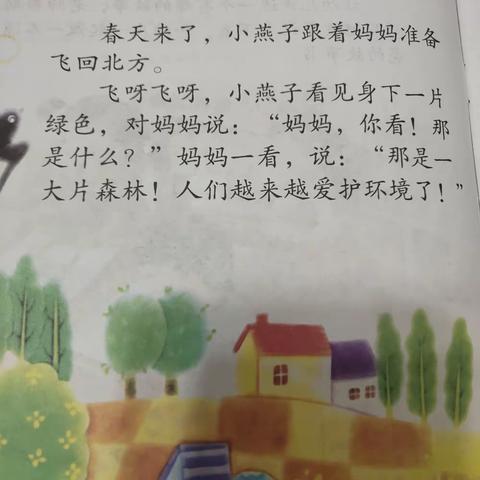 春天来了，小燕子跟着妈妈准备
飞回北方。
飞呀飞呀，小燕子看见身下一片
绿色，对妈妈说：“妈妈，你看！那
是什么？”妈妈一看，说：“那是一
大片森林！人们越来越爱护环境了！”